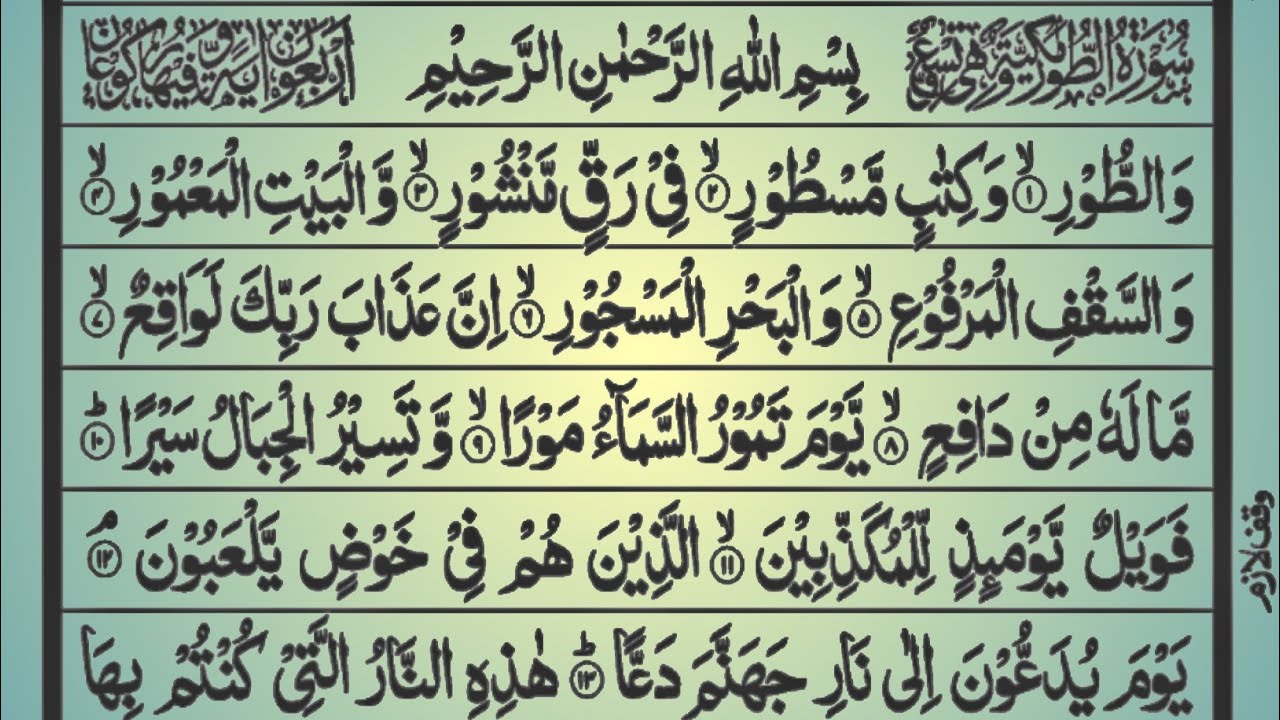 سُوْرَةُ الطُّوْرِ مَكِّيَّةٌ وَّهِيَ تِسْعٌ وَّ بِسْمِ اللهِ الرَّحْمٰنِ الرَّحِيْمِ اَرْبَعُوْنَ اٰيَةً وَّ فِيْهَا رُكُوْعَانِ
وَالطُّوْرِ ۙ﴿۱﴾ وَكِتٰبٍ مَّسْطُوْرٍ ۙ﴿۲﴾ فِيْ رَقٍّ مَّنْشُوْرٍ ۙ﴿۳﴾ وَّالْبَيْتِ الْمَعْمُوْرِ ۙ﴿۴﴾
وَالسَّقْفِ الْمَرْفُوْعِ ۙ﴿۵﴾ وَالْبَحْرِ الْمَسْجُوْرِ ۙ﴿۶﴾ اِنَّ عَذَابَ رَبِّكَ لَوَاقِعٌ ۙ﴿۷﴾
مَّا لَهٗ مِنْ دَافِعٍ ۙ﴿۸﴾ يَّوْمَ تَمُوْرُ السَّمَآءُ مَوْرًا ۙ﴿۹﴾ وَّتَسِيْرُ الْجِبَالُ سَيْرًا ؕ﴿۱۰﴾
فَوَيْلٌ يَّوْمَئِذٍ لِّلْمُكَذِّبِيْنَ ۙ﴿۱۱﴾ الَّذِيْنَ هُمْ فِيْ خَوْضٍ يَّلْعَبُوْنَ ۘ﴿۱۲﴾
وقف لازم
يَوْمَ يُدَعُّوْنَ اِلٰى نَارِ جَهَنَّمَ دَعًّا ؕ﴿۱۳﴾ هٰذِهِ النَّارُ الَّتِيْ كُنْتُمْ بِهَا